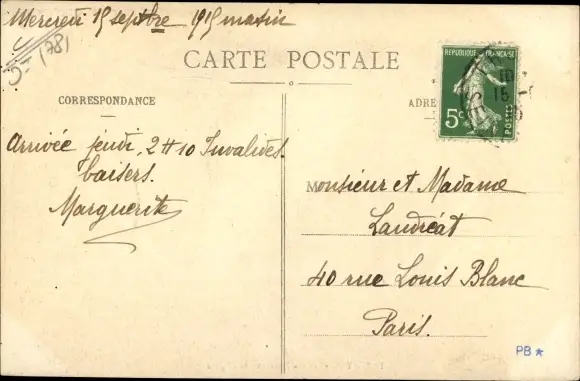 Mercredi 15 septbre 1915 matin
5- (78)
CARTE POSTALE
CORRESPONDANCE
ADRE
RÉPUBLIQUE FRANÇAISE
5c
POSTES
10
15
Arrivée jeudi, 2H10 Invalides.
baisers.
Marguerite
Monsieur et Madame
Laudréat
40 rue Louis Blanc
Paris.
PB★